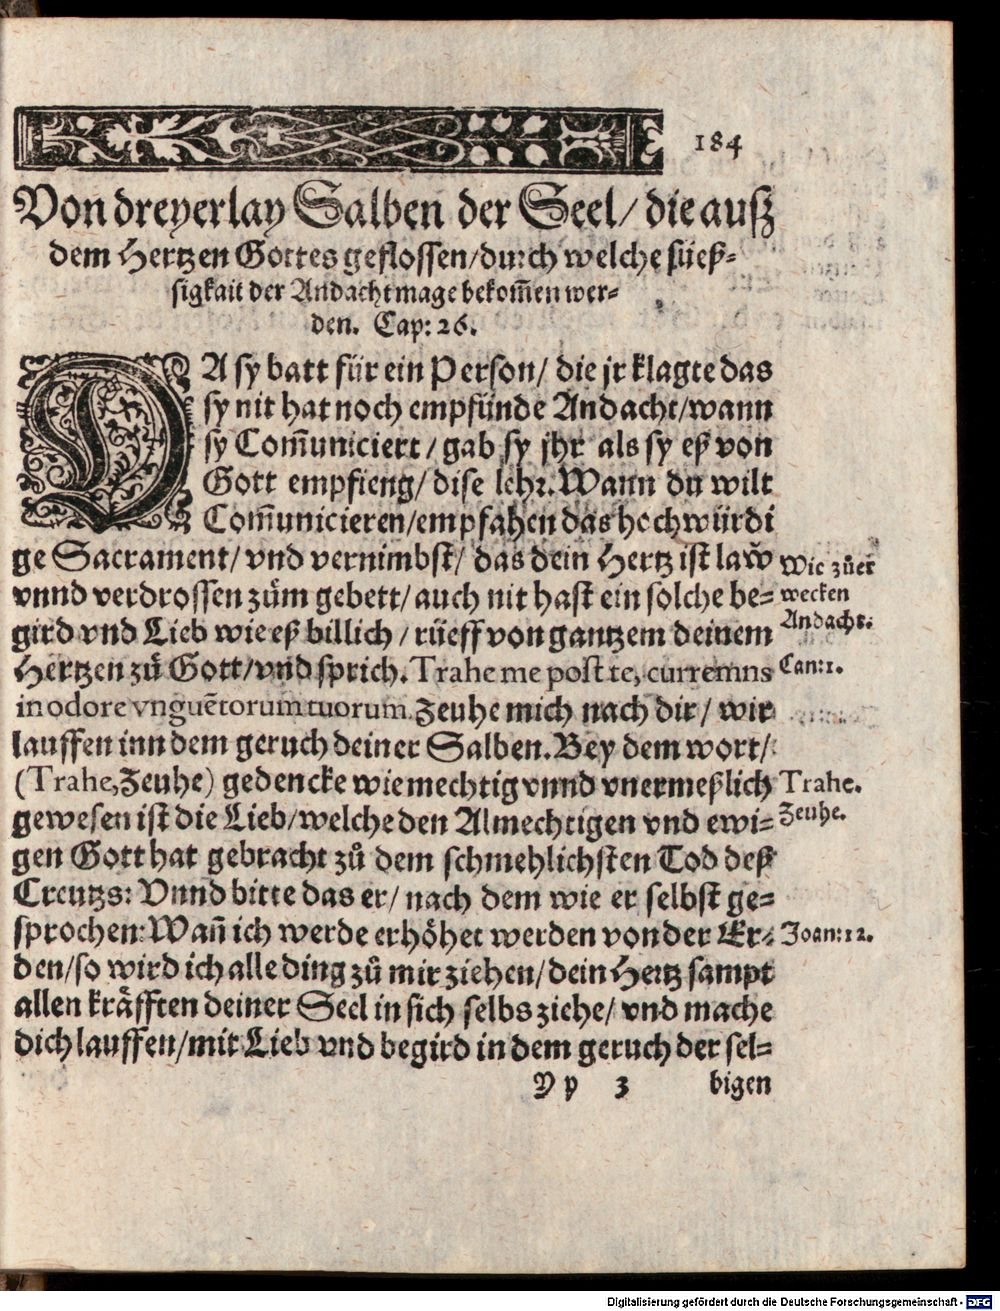 184
Von dreyerlay Salben der Seel/ die auß
dem Hertzen Gottes geflossen/durch welche süeß-
sigkait der Andacht mage bekom̃en wer-
den. Cap: 26.
DA sy batt für ein Person/ die jr klagte das
sy nit hat noch empfünde Andacht/wann
sy Com̃uniciert/ gab sy jhr als sy eß von
Gott empfieng/ dise lehr. Wann du wilt
Com̃unicieren/empfahen das hochwürdi
ge Sacrament/ vnd vernimbst/ das dein Hertz ist law̃
vnnd verdrossen zům gebett/ auch nit hast ein solche be-
gird vnd Lieb wie eß billich/ rüeff von gantzem deinem
Hertzen zů Gott/vnd sprich. Trahe me post te, curremns
in odore vnguẽtorum tuorum. Zeuhe mich nach dir/ wir
lauffen inn dem geruch deiner Salben. Bey dem wort/
(Trahe, Zeuhe) gedencke wie mechtig vnnd vnermeßlich
gewesen ist die Lieb/welche den Almechtigen vnd ewi-
gen Gott hat gebracht zů dem schmehlichsten Tod deß
Creutzs: Vnnd bitte das er/ nach dem wie er selbst ge-
sprochen: Wañ ich werde erhöhet werden von der Er-
den/so wird ich alle ding zů mir ziehen/ dein Hertz sampt
allen kräfften deiner Seel in sich selbs ziehe/ vnd mache
dich lauffen/mit Lieb vnd begird in dem geruch der sel-
Y y 3 bigen
Wie zů er
wecken
Andacht.
Can: 1.
Trahe.
Zeuhe.
Joan: 12.
Digitalisierung gefördert durch die Deutsche Forschungsgemeinschaft - DFG